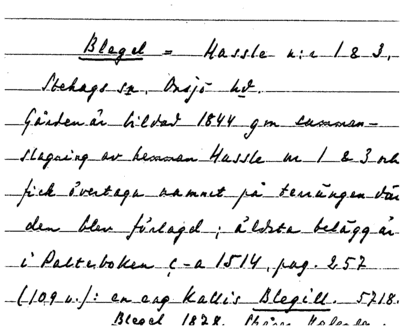 Blegel = Hassle n:r 1 & 3,
Stehags sn. Onsjö hd.
Gården är bildad 1844 gm samman-
slagning av hemman Hassle nr 1 & 3 och
fick övertaga namnet på terrängen där
den blev förlagd; äldsta belägg är
i Palteboken c-a 1514, pag. 257
(109 v.): en eng kallis Blegill. 5718.
Blegel 1828.